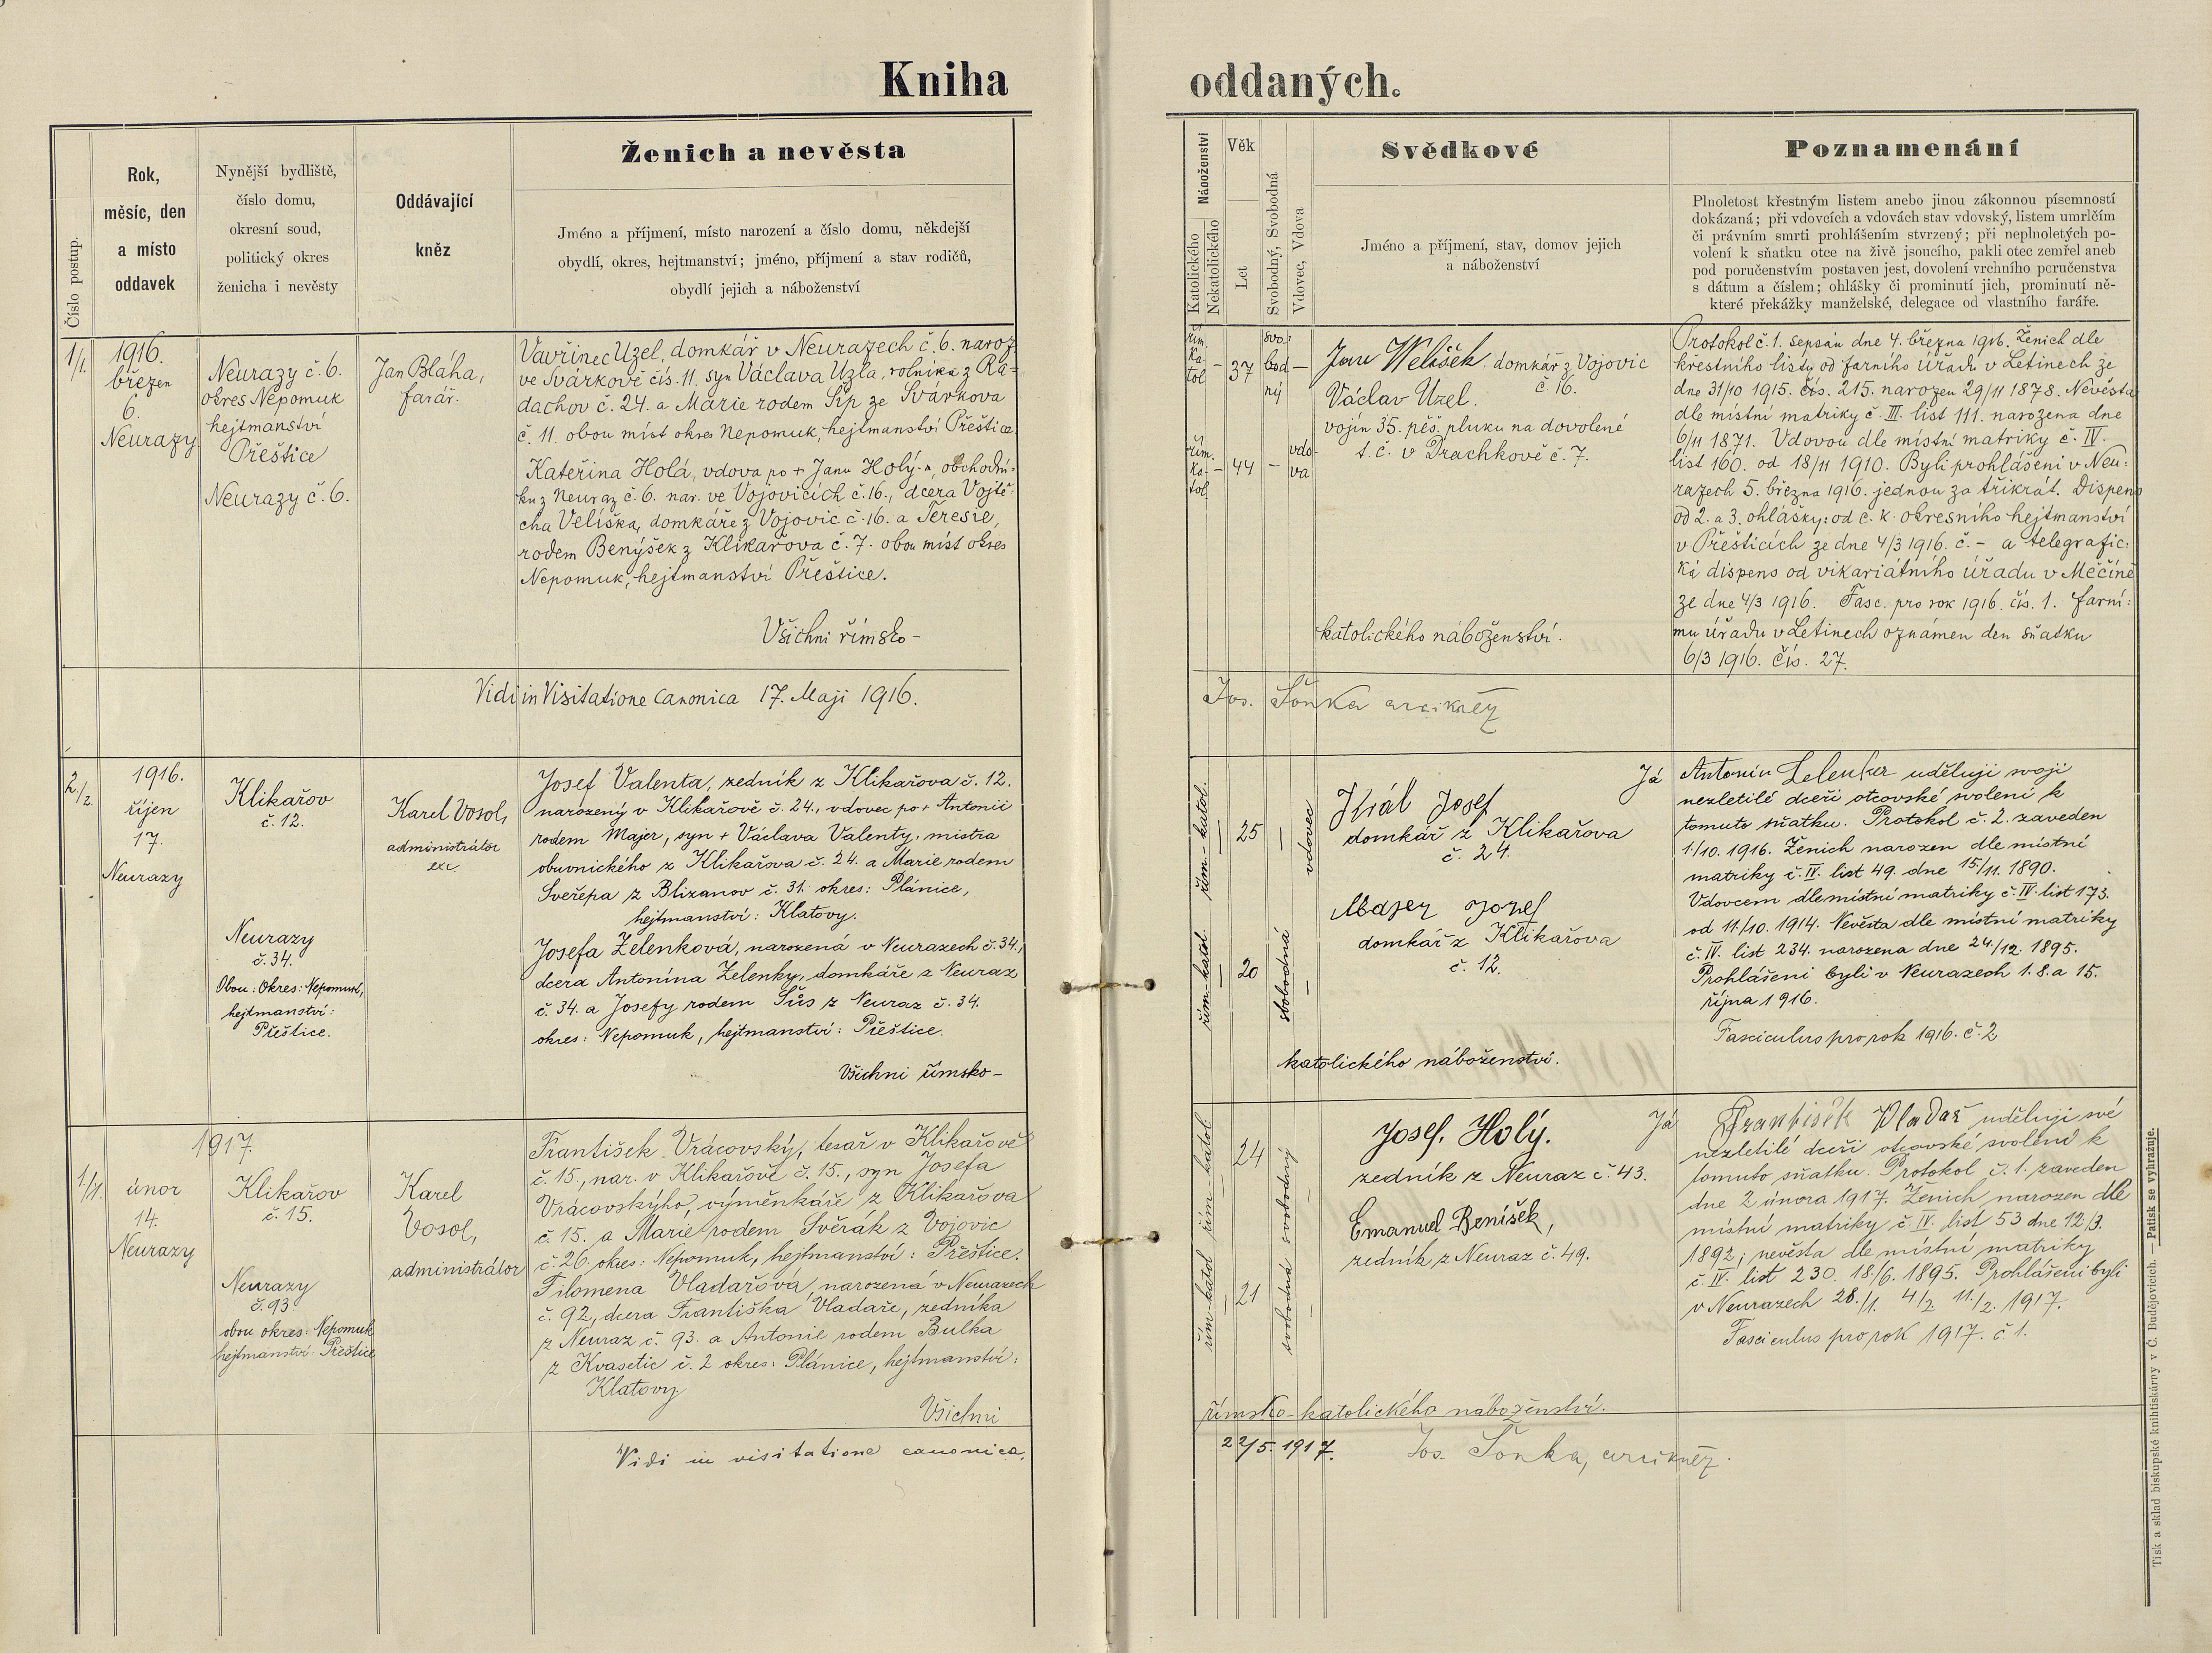 Kniha oddaných.
Číslo postup.
Rok,
měsíc, den
a místo
oddavek
Nynější bydliště,
číslo domu,
okresní soud,
politický okres
ženicha i nevěsty
Oddávající
kněz
Ženich a nevěsta
Jméno a příjmení, místo narození a číslo domu, někdejší
obydlí, okres, hejtmanství; jméno, příjmení a stav rodičů,
obydlí jejich a náboženství
Náboženství
Katolického
Nekatolického
Věk
Let
Svobodný, Svobodná
Vdovec, Vdova
Svědkové
Jméno a příjmení, stav, domov jejich
a náboženství
Poznamenání
Plnoletost křestným listem anebo jinou zákonnou písemností
dokázaná; při vdovcích a vdovách stav vdovský, listem umrlčím
či právním smrti prohlášením stvrzený; při neplnoletých po-
volení k sňatku otce na živě jsoucího, pakli otec zemřel aneb
pod poručenstvím postaven jest, dovolení vrchního poručenstva
s dátum a číslem; ohlášky či prominutí jich, prominutí ně-
které překážky manželské, delegace od vlastního faráře.
1/1.
1916.
březen
6.
Neurazy
Neurazy č. 6.
okres Nepomuk
hejtmanství
Přeštice
Neurazy č. 6.
Jan Bláha,
farář.
Vavřinec Uzel, domkář v Neurazech č. 6. naroz.
ve Svárkově čís. 11. syn Václava Uzla, rolníka z Ra-
dachov č. 24. a Marie rodem Šíp ze Svárkova
č. 11. obou míst okres Nepomuk, hejtmanství Přeštice
Kateřina Holá, vdova po + Janu Holý-m, obchodní-
ku z Neuraz č. 6. nar. ve Vojovicích č. 16., dcera Vojtě-
cha Velíška, domkáře z Vojovic č. 16. a Teresie,
rodem Benýšek z Klikařova č. 7. obou míst okres
Nepomuk, hejtmanství Přeštice.
Všichni římsko-
řím.
ka-
tol
37
svo-
bod-
ný
řím.
ka-
tol.
44
vdo-
va
Jan Welišek, domkář z Vojovic
č. 16.
Václav Uzel.
vojín 35. pěš. pluku na dovolené
t. č. v Drachkově č. 7.
katolického náboženství.
Protokol č. 1. sepsán dne 4. března 1916. Ženich dle
křestního listu od farního úřadu v Letinech ze
dne 31/10 1915. čís. 215. narozen 29/11 1878. Nevěsta
dle místní matriky č. III. list 111. narozena dne
6/11 1871. Vdovou dle místní matriky č. IV.
list 160. od 18/11 1910. Byli prohlášeni v Neu-
razech 5. března 1916. jednou za třikrát. Dispens
od 2. a 3. ohlášky: od c. k. okresního hejtmanství
v Přešticích ze dne 4/3 1916. č. - a telegrafic-
ká dispens od vikariátního úřadu v Měčíně
ze dne 4/3 1916. Fasc. pro rok 1916. čís. 1. farní-
mu úřadu v Letinech oznámen den sňatku
6/3 1916. čís. 27.
Vidi in Visitatione Canonica 17. Maji 1916.
Jos. Šonka arcikněz
2./2.
1916.
říjen
17.
Neurazy
Klikařov
č. 12.
Neurazy
č. 34.
Obou: Okres: Nepomuk,
hejtmanství:
Přeštice.
Karel Vosol,
administrátor
exc.
Josef Valenta, zedník z Klikařova č. 12.
narozený v Klikařově č. 24., vdovec po + Antonii
rodem Majer, syn + Václava Valenty, mistra
obuvnického z Klikařova č. 24. a Marie rodem
Sveřepa z Blizanov č. 31. okres: Plánice,
hejtmanství: Klatovy.
Josefa Zelenková, narozená v Neurazech č. 34.,
dcera Antonína Zelenky, domkáře z Neuraz
č. 34. a Josefy rodem Šůs z Neuraz č. 34.
okres: Nepomuk, hejtmanství: Přeštice.
Všichni římsko-
řím-katol.
25
vdovec
řím-katol.
20
svobodná
Král Josef
domkář z Klikařova
č. 24.
Majer Jozef
domkář z Klikařova
č. 12.
katolického náboženství.
Já Antonín Zelenka uděluji svojí
nezletilé dceři otcovské svolení k
tomuto sňatku. Protokol č. 2. zaveden
1./10. 1916. Ženich narozen dle místní
matriky č. IV. list 49. dne 15./11. 1890.
Vdovcem dle místní matriky č. IV. list 173.
od 11./10. 1914. Nevěsta dle místní matriky
č. IV. list 234. narozena dne 24./12. 1895.
Prohlášeni byli v Neurazech 1. 8. a 15.
října 1916.
Fasciculus pro rok 1916. č. 2
1/1.
1917.
únor
14.
Neurazy
Klikařov
č. 15.
Neurazy
č. 93.
obou okres: Nepomuk
hejtmanství: Přeštice
Karel
Vosol,
administrátor
František Vrácovský, tesař v Klikařově
č. 15., nar. v Klikařově č. 15., syn Josefa
Vrácovskýho, výměnkáře z Klikařova
č. 15. a Marie rodem Svěrák z Vojovic
č. 26. okres: Nepomuk, hejtmanství: Přeštice.
Filomena Vladařová, narozená v Neurazech
č. 92, dcera Františka Vladaře, zedníka
z Neuraz č. 93. a Antonie rodem Bulka
z Kvasetic č. 2 okres: Plánice, hejtmanství:
Klatovy
Všichni
řím-katol
24
svobodný
řím-katol
21
svobodná
Josef. Holý.
zedník z Neuraz č. 43.
Emanuel Beníšek,
zedník z Neuraz č. 49.
římsko-katolického náboženství.
Já František Vladař uděluji své
nezletilé dceři otcovské svolení k
tomuto sňatku. Protokol č. 1. zaveden
dne 2 února 1917. Ženich narozen dle
místní matriky č. IV. list 53 dne 12/3.
1892; nevěsta dle místní matriky
č. IV. list 230. 18./6. 1895. Prohlášeni byli
v Neurazech 28./1. 4./2. 11./2. 1917.
Fasciculus pro rok 1917. č. 1.
Vidi in visitatione canonica,
22/5. 1917. Jos. Šonka, arcikněz.
Tisk a sklad biskupské knihtiskárny v Č. Budějovicích. — Patisk se vyhražuje.